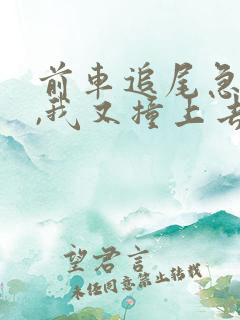 前車追尾急
,我又撞上去
望君言
未经同意禁止转载